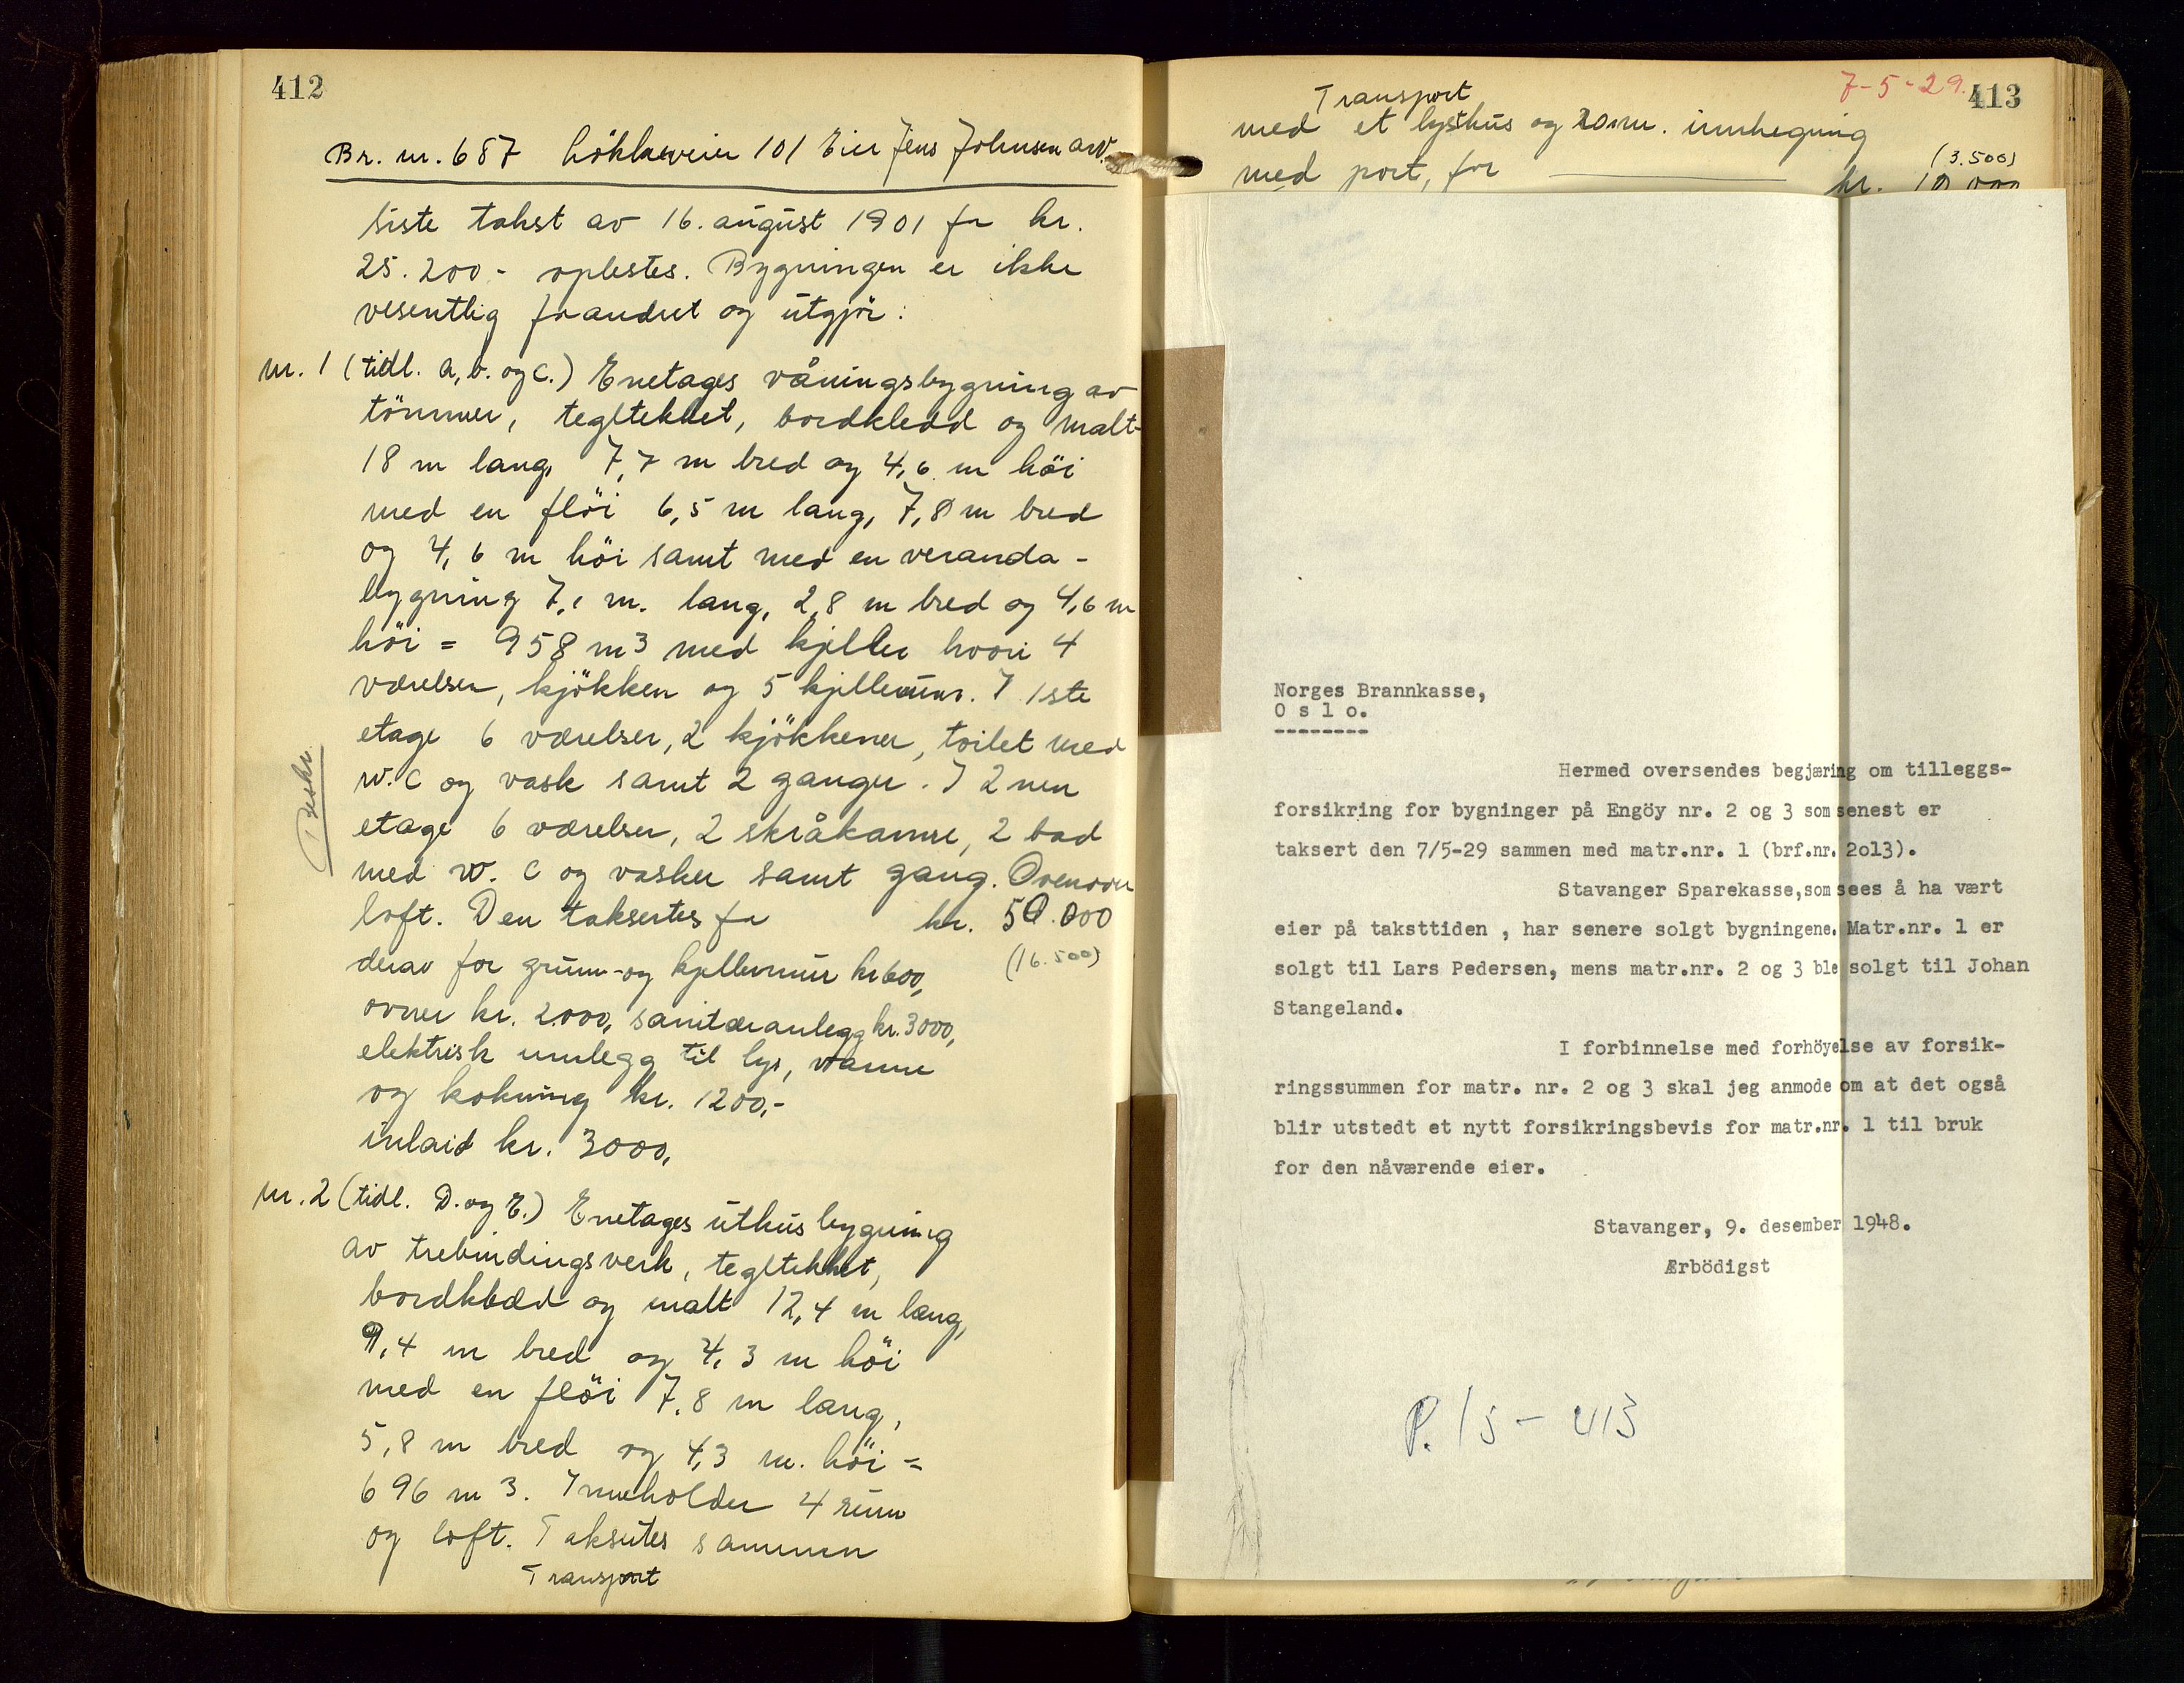 412
Br. nr. 687 Lökkeveien 101 Eier Jens Johnsen arv.
siste takst av 16. august 1901 for kr.
25.200- oplestes. Bygningen er ikke
vesentlig forandret og utgjör:
nr. 1 (tidl. a, b. og c.) Enetages våningsbygning av
tömmer, tegltekket, bordkledd og malt-
18 m lang, 7,7 m bred og 4,6 m höi
med en flöi 6,5 m lang, 7,8 m bred
og 4,6 m höi samt med en veranda-
bygning 7,1 m. lang, 2,8 m bred og 4,6 m
höi = 958 m3 med kjeller hvori 4
værelser, kjökken og 5 kjellerrum. I 1ste
etage 6 værelser, 2 kjökkener, toilet med
w.c og vask samt 2 ganger. I 2nen
etage 6 værelser, 2 skråkamre, 2 bad
med w. c og vasker samt gang. Ovenover
loft. Den taksertes for kr. 50.000
(16.500)
derav for grunn- og kjellermur kr 600,
ovner kr. 2.000, sanitæranlegg kr. 3000,
elektrisk innlegg til lys, varme
og kokning kr. 1200,-
inlaid kr. 3000,
Beskr.
nr. 2 (tidl. D. og E.) Enetages uthusbygning
av trebindingsverk, tegltekket,
bordklæd og malt 12,4 m lang,
9,4 m bred og 4,3 m höi
med en flöi 7,8 m lang,
5,8 m bred og 4,3 m. höi =
696 m3. Inneholder 4 rum
og loft. Taksertes sammen
Transport
7-5-29. 413
Transport
med et lysthus og 20 m. innhegning
(3.500)
med port, for kr. 10 000
Norges Brannkasse,
O s l o.
--------
Hermed oversendes begjæring om tilleggs-
forsikring for bygninger på Engöy nr. 2 og 3 som senest er
taksert den 7/5-29 sammen med matr.nr. 1 (brf.nr. 2o13).
Stavanger Sparekasse, som sees å ha vært
eier på taksttiden , har senere solgt bygningene. Matr.nr. 1 er
solgt til Lars Pedersen, mens matr.nr. 2 og 3 ble solgt til Johan
Stangeland.
I forbinnelse med forhöyelse av forsik-
ringssummen for matr. nr. 2 og 3 skal jeg anmode om at det også
blir utstedt et nytt forsikringsbevis for matr.nr. 1 til bruk
for den nåværende eier.
Stavanger, 9. desember 1948.
Ærbödigst
P. 15 - 413